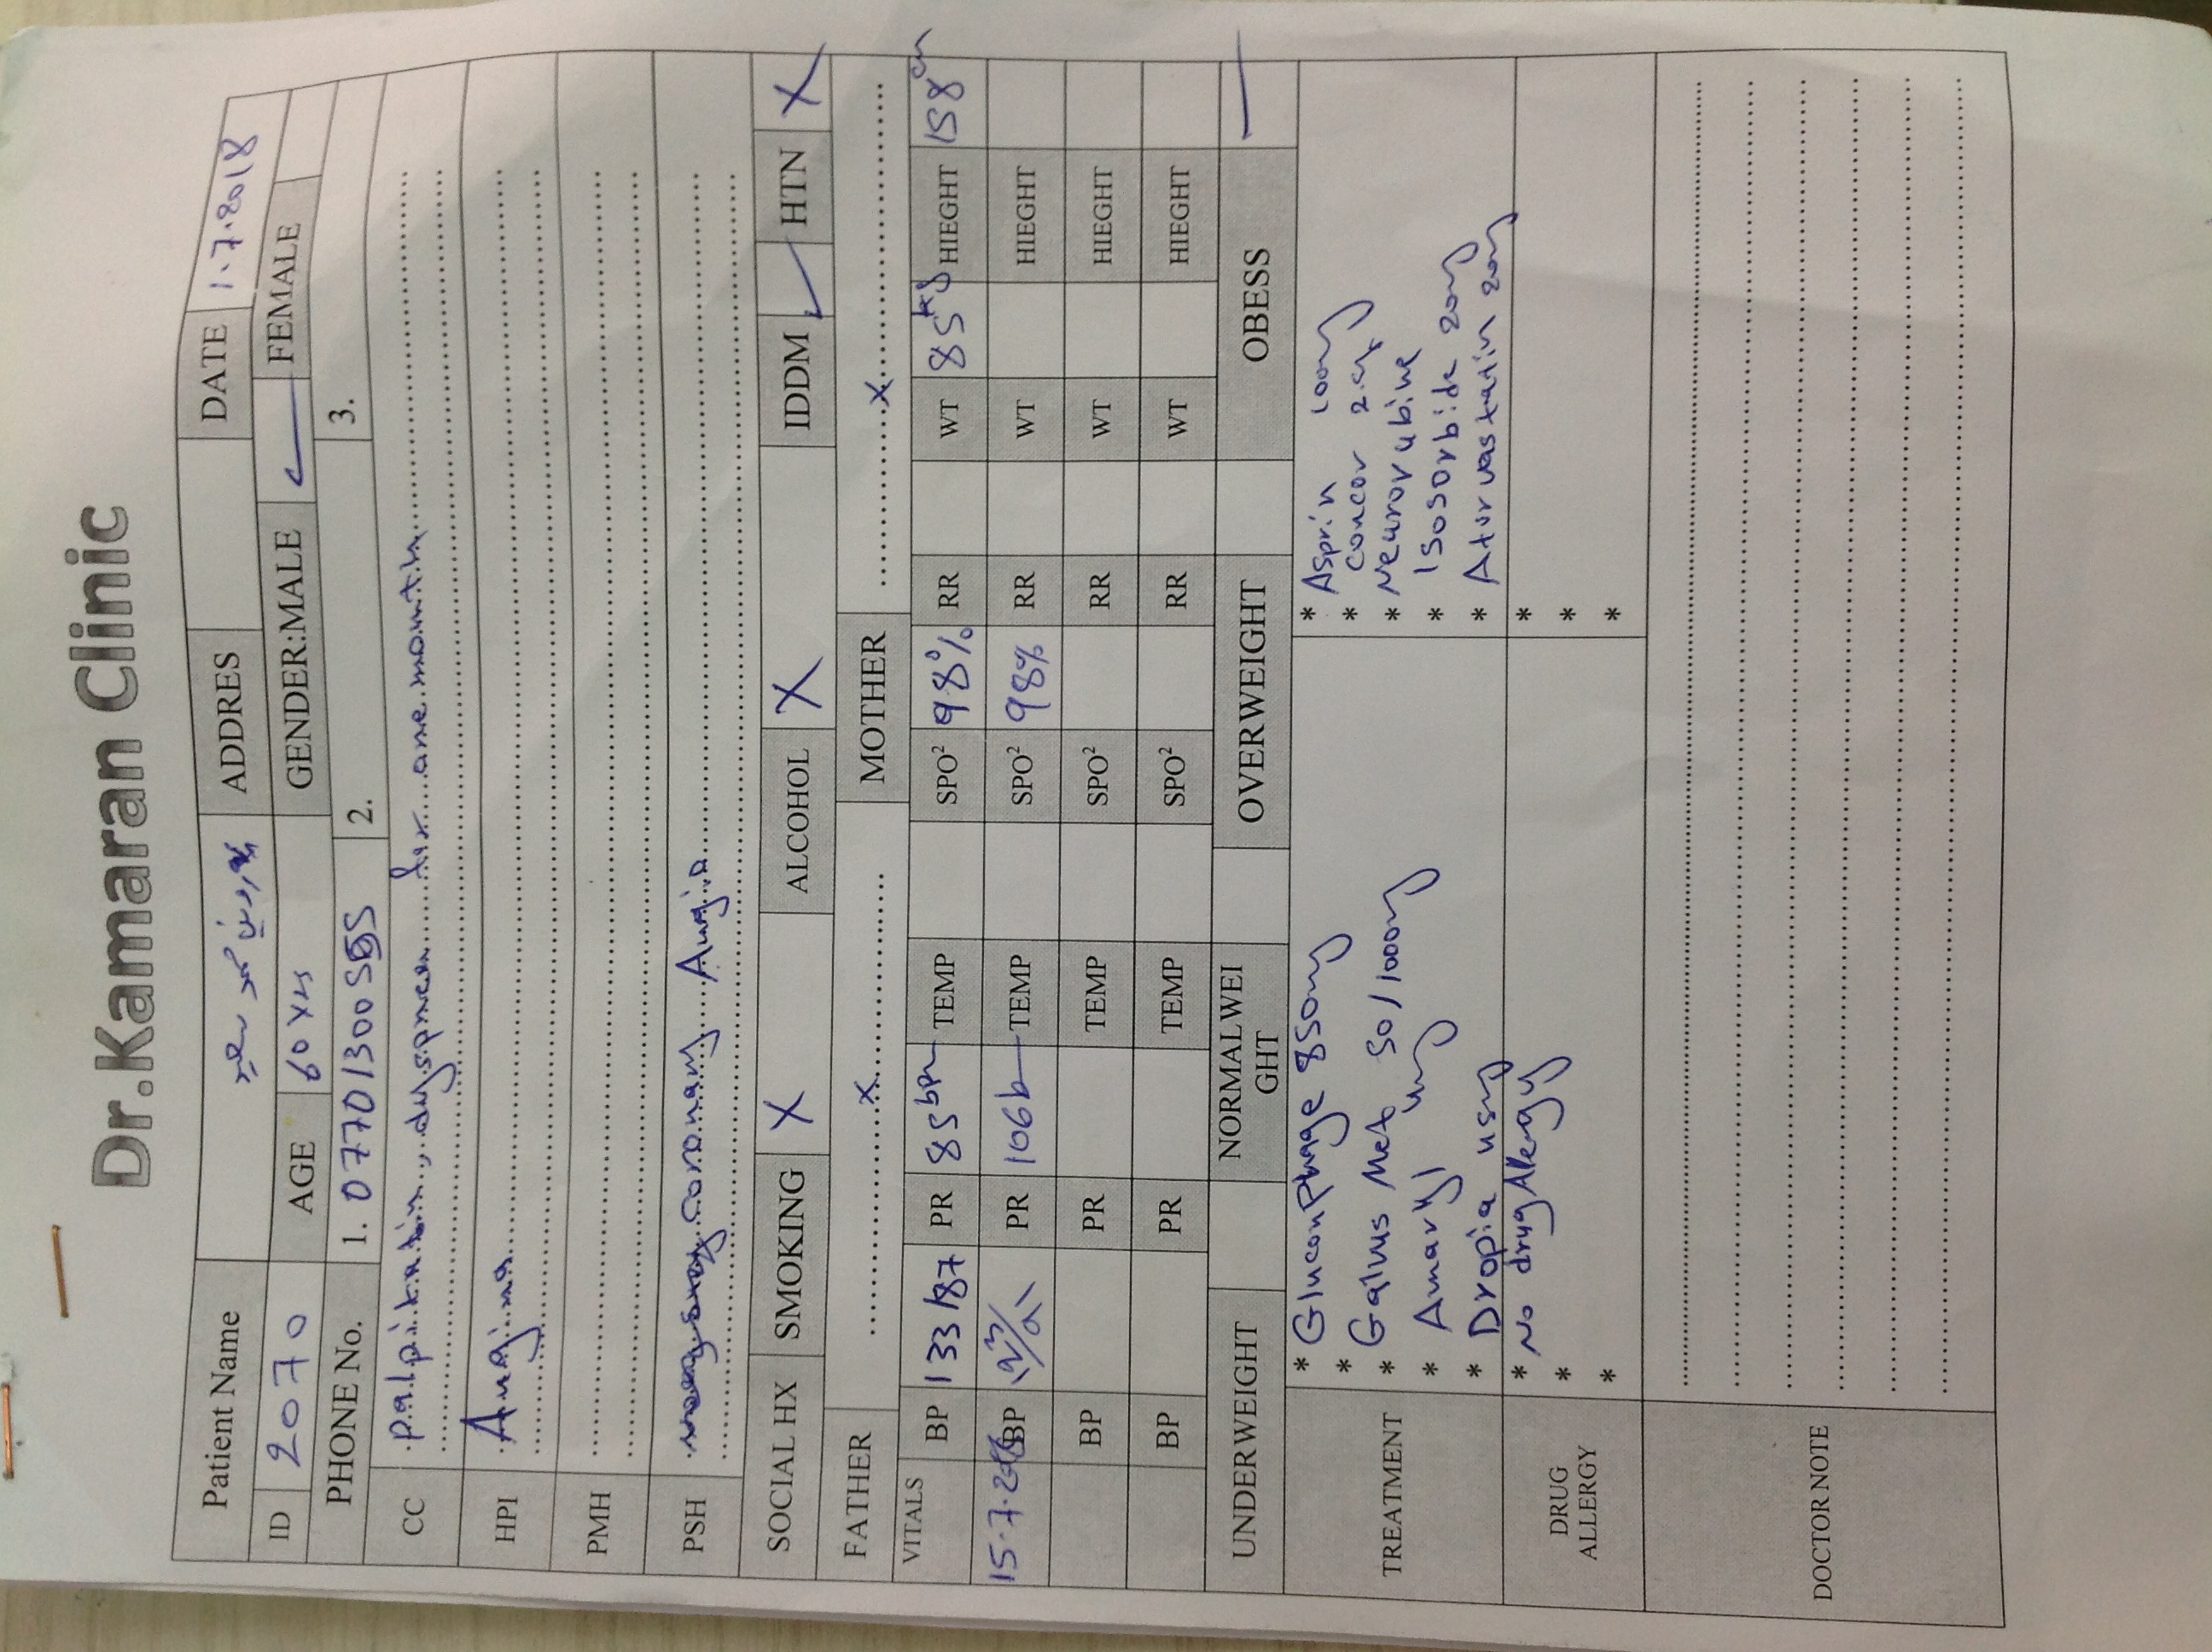 Dr.Kamaran Clinic
Patient Name ADDRES DATE 1.7.2018
ID 2070 AGE 60 yrs GENDER:MALE FEMALE
PHONE No. 1. 2. 3.
CC palpitation, dyspnea for one month
HPI Angina
PMH
PSH coronary Angio
SOCIAL HX SMOKING X ALCOHOL X IDDM ✓ HTN X
FATHER x MOTHER x
VITALS BP 133/87 PR 85 bpm TEMP SPO² 98% RR WT 85 kg HIEGHT 158 cm
15.7.2018 BP PR 106b TEMP SPO² 98% RR WT HIEGHT
BP PR TEMP SPO² RR WT HIEGHT
BP PR TEMP SPO² RR WT HIEGHT
UNDERWEIGHT NORMALWEI GHT OVERWEIGHT OBESS
TREATMENT
* Glucophage 850mg
* Galvus Met 50/1000mg
* Amaryl
* Dropia
* Asprin 100mg
* concor
* Neurorubine
* Isosorbide 20mg
* Atorvastatin 20mg
DRUG ALLERGY
* No drug Alergy
*
*
*
*
*
DOCTOR NOTE